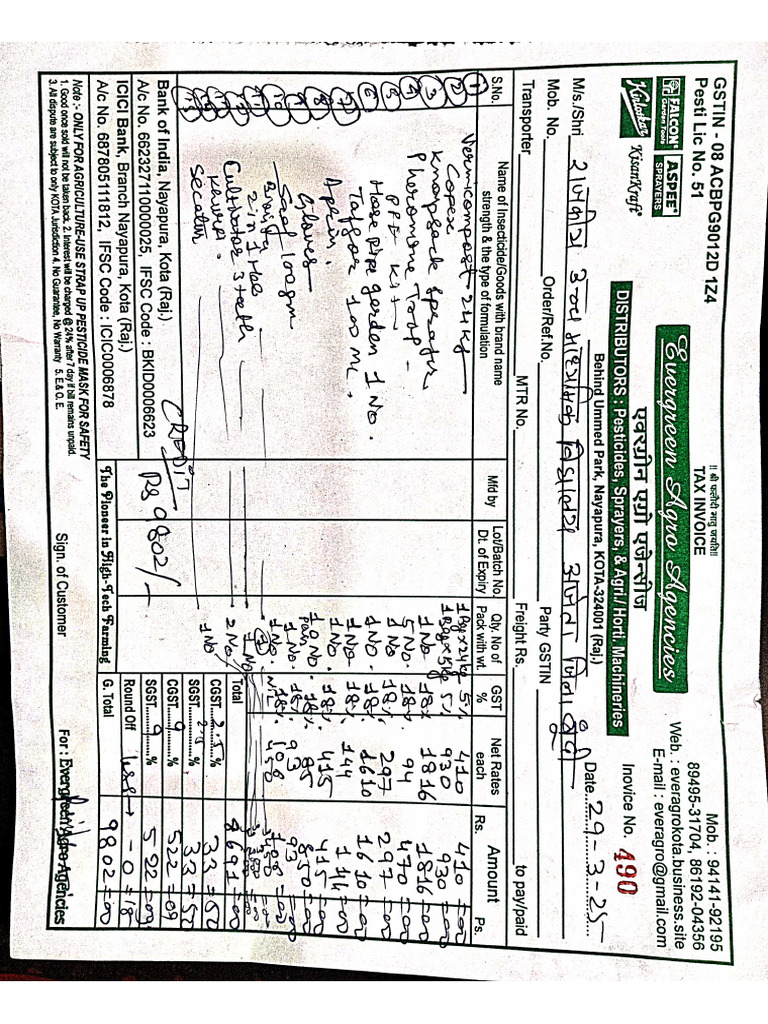 GSTIN - 08 ACBPG9012D 1Z4
Pesti Lic No. 51
!! श्री फलौदी मातु जयति!!
TAX INVOICE
Mob. : 94141-92195
89495-31704, 86192-04356
Web. : everagrokota.business.site
E-mail : everagro@gmail.com
FALCON Garden Tools
ASPEE SPRAYERS
Kirloskar
KisanKraft
Evergreen Agro Agencies
एवरग्रीन एग्रो एजेन्सीज
DISTRIBUTORS : Pesticides, Sprayers, & Agri./ Horti. Machineries
Behind Ummed Park, Nayapura, KOTA-324001 (Raj.)
Inovice No. 490
Date 29-3-25
M/s./Shri राजकीय उच्च माध्यमिक विद्यालय
Mob. No. Order/Ref.No. Party GSTIN
Transporter MTR No. Freight Rs. to pay/paid
S.No. Name of Insecticide/Goods with brand name strength & the type of formulation Mfd by Lot/Batch No. Dt. of Expiry Qty. No of Pack with wt. GST % Net Rates each Amount Rs. Ps.
1 Vermicompost 24kg 5% 410 410=00
2 930 930=00
3 Knapsack Sprayer 1 No 18% 1816 1816=00
4 Pheromone Trap - 5 No. 18% 94 470=00
5 PPE Kit 1 No 18% 297 297=00
6 Hose pipe garden 1 No. 1 No. 18% 1610 1610=00
7 100 ML. 1 No 18% 144 144=00
8 1 No 18% 415 415=00
9 Gloves 10 18% 85 850=00
10 Saaf 100gm 1 No. 18% 93 93=00
2 in 1 Hoe
Cultivator 3 teeth
Khurpi. 2 No
Secateur 1 No
CREDIT
Rs 9802/-
Total 8691=00
CGST 2.5 % 33=50
SGST 2.5 % 33=50
CGST 9 % 522=09
SGST 9 % 522=09
Round Off Less → -0=18
G. Total 9802=00
Bank of India, Nayapura, Kota (Raj.)
A/c No. 662327110000025, IFSC Code : BKID0006623
ICICI Bank, Branch Nayapura, Kota (Raj.)
A/c No. 687805111812, IFSC Code : ICIC0006878
The Pioneer in High-Tech Farming
Note :- ONLY FOR AGRICULTURE-USE STRAP UP PESTICIDE MASK FOR SAFETY
1. Good once sold will not be taken back. 2. Interest will be charged @ 24% after 7 day if bill remains unpaid.
3. All dispute are subject to only KOTA Jurisdiction 4. No Guarantee, No Warranty 5. E.& O. E.
Sign. of Customer
For : Evergreen Agro Agencies